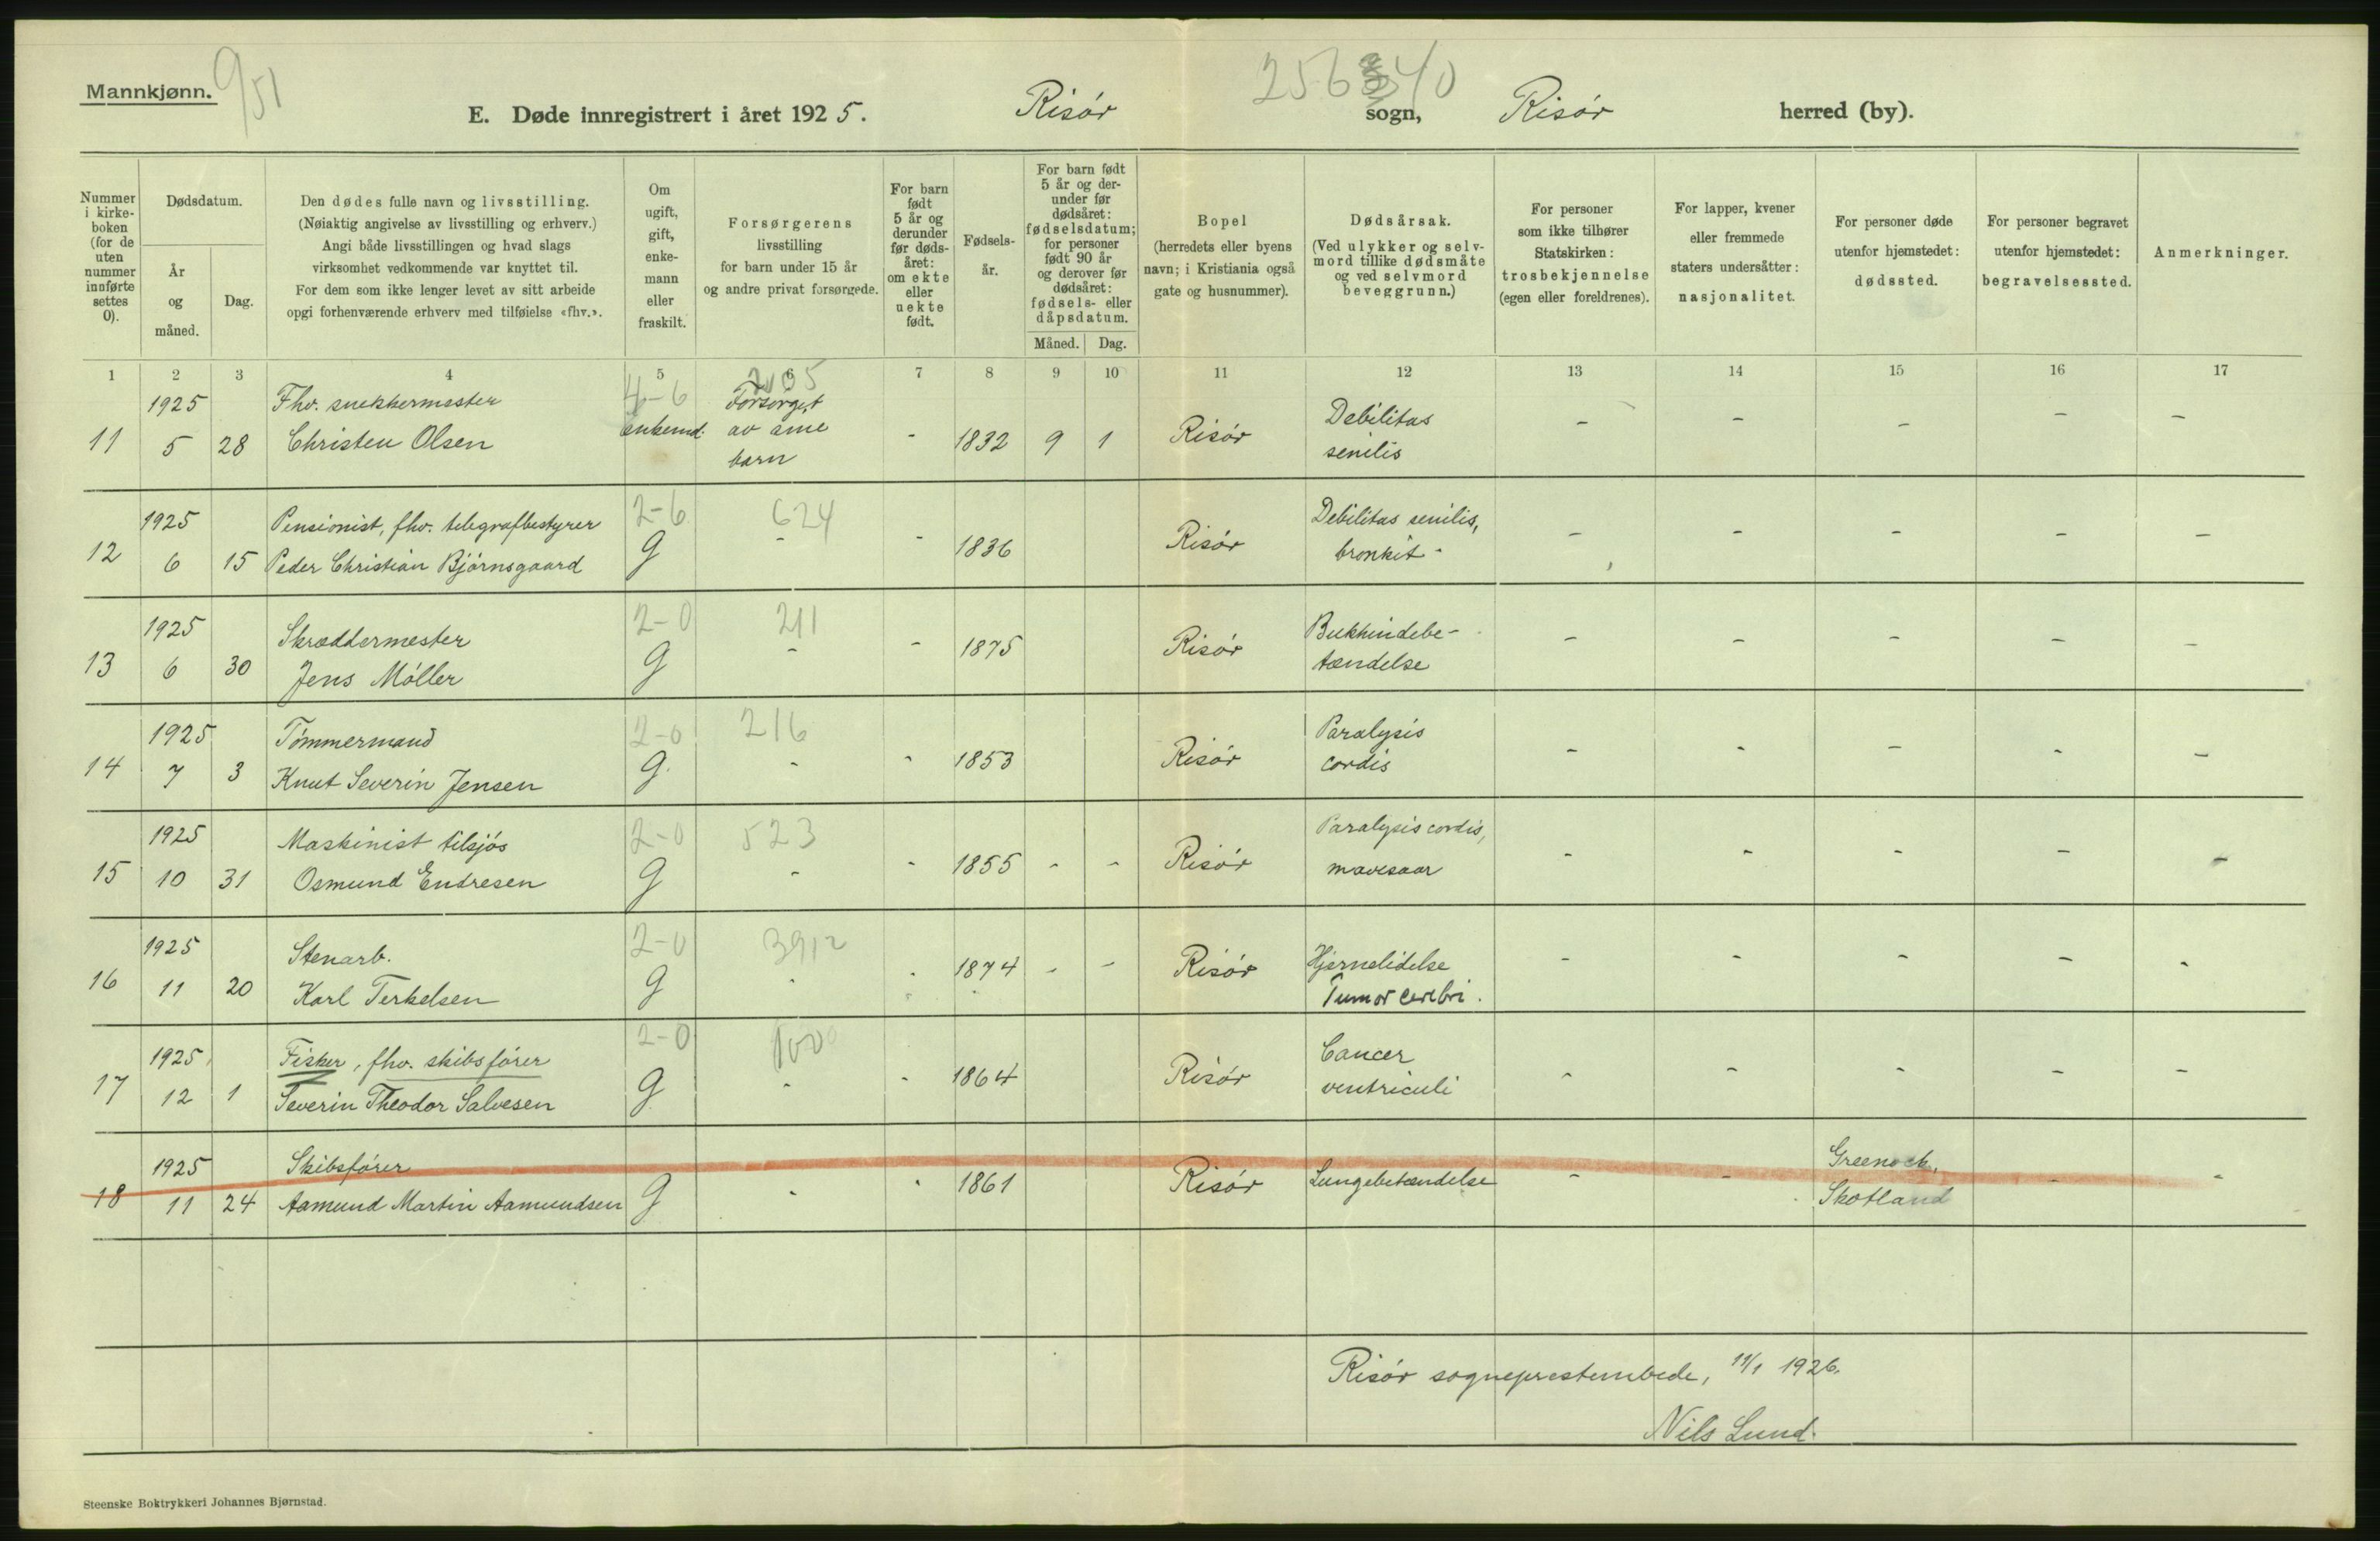 Mannkjønn.
9/51
25640
E. Døde innregistrert i året 1925. Risør sogn, Risør herred (by).
Nummer i kirke- boken (for de uten nummer innførte settes 0).
Dødsdatum.
År og måned.
Dag.
Den dødes fulle navn og livsstilling.
(Nøiaktig angivelse av livsstilling og erhverv.)
Angi både livsstillingen og hvad slags
virksomhet vedkommende var knyttet til.
For dem som ikke lenger levet av sitt arbeide
opgi forhenværende erhverv med tilføielse «fhv.».
Om ugift, gift, enke- mann eller fraskilt.
Forsørgerens
livsstilling
for barn under 15 år
og andre privat forsørgede.
For barn født 5 år og derunder før døds- året: om ekte eller uekte født.
Fødsels- år.
For barn født 5 år og der- under før dødsåret: fødselsdatum; for personer født 90 år og derover før dødsåret: fødsels- eller dåpsdatum.
Måned. Dag.
Bopel
(herredets eller byens
navn; i Kristiania også
gate og husnummer).
Dødsårsak.
(Ved ulykker og selv-
mord tillike dødsmåte
og ved selvmord
beveggrunn.)
For personer
som ikke tilhører
Statskirken:
trosbekjennelse
(egen eller foreldrenes).
For lapper, kvener
eller fremmede
staters undersåtter:
nasjonalitet.
For personer døde
utenfor hjemstedet:
dødssted.
For personer begravet
utenfor hjemstedet:
begravelsessted.
Anmerkninger.
1 2 3 4 5 6 7 8 9 10 11 12 13 14 15 16 17
1925 Fhv. snekkermester 4-6 Forsørget Debilitas
11 5 28 Christen Olsen enkemd. av sine - 1832 9 1 Risør senilis - - - - -
barn
1925 Pensionist, fhv. telegrafbestyrer 2-6 624 Debilitas senilis,
12 6 15 Peder Christian Bjørnsgaard g - - 1836 Risør bronkit - - - - - -
1925 Skræddermester 2-0 211 Bukhindebe-
13 6 30 Jens Møller g - - 1875 Risør tændelse - - - - -
1925 Tømmermand 2-0 216 Paralysis
14 7 3 Knut Severin Jensen g. - - 1853 Risør cordis - - - - -
1925 Maskinist tilsjøs 2-0 523 Paralysis cordis,
15 10 31 Osmund Endresen g - - 1855 - - Risør mavesaar - - - - -
1925 Stenarb. 2-0 3912 Hjernelidelse
16 11 20 Karl Terkelsen g - - 1874 - - Risør Tumor cerebri. - - - - -
1925 Fisker, fhv. skibsfører 2-0 Cancer
17 12 1 Severin Theodor Salvesen g - - 1864 Risør ventriculi - - - - -
1925 Skibsfører Greenock,
18 11 24 Aamund Martin Aamundsen g - - 1861 Risør Lungebetændelse - - Skotland - -
Risør sogneprestembede, 11/1 1926.
Nils Lund.
Steenske Boktrykkeri Johannes Bjørnstad.